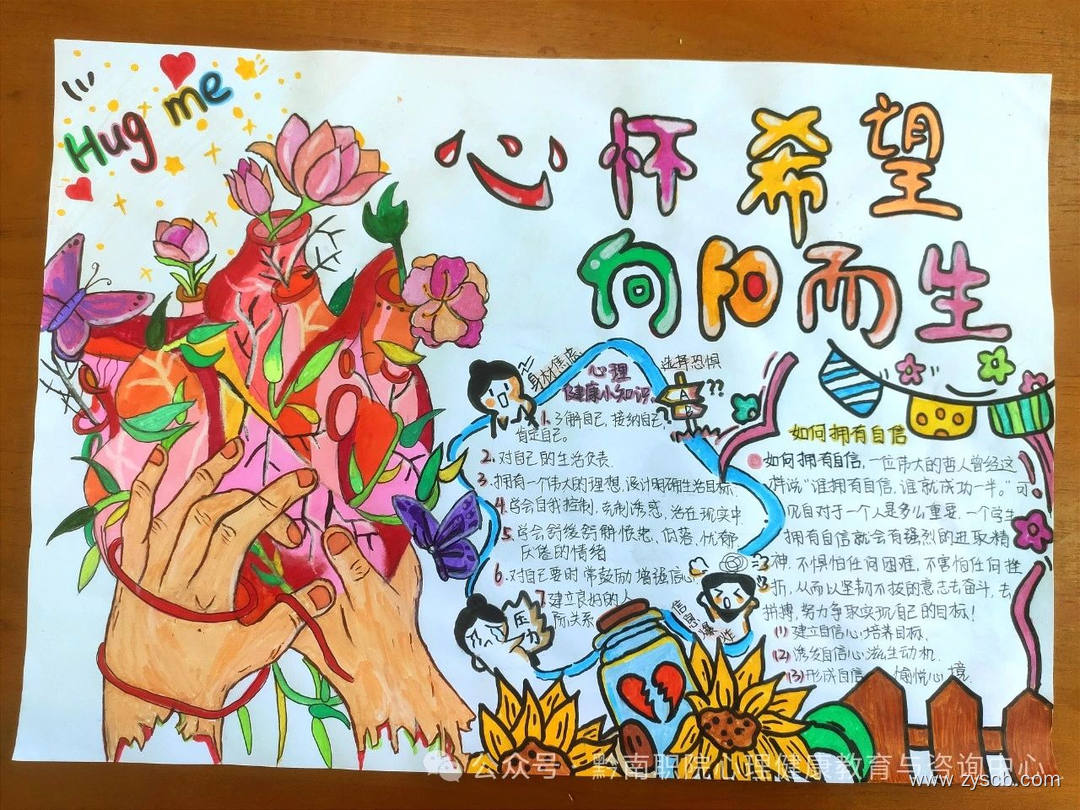 Hug me
心怀希望
向阳而生
身材焦虑
选择恐惧
心理
健康小知识
??
A
B
1. 了解自己,接纳自己,
肯定自己。
2. 对自己的生活负责.
3. 拥有一个伟大的理想,设计明确生活目标.
4. 学会自我控制,克制诱惑,活在现实中.
5. 学会舒缓舒解愤怒,低落,忧郁
厌倦的情绪
6. 对自己要时常鼓励 增强信心
7. 建立良好的人
际关系
压力
信息爆炸
如何拥有自信
如何拥有自信,一位伟大的哲人曾经这
样说“谁拥有自信,谁就成功一半。”可
见自对于一个人是多么重要.一个学生
拥有自信就会有强烈的进取精
神.不惧怕任何困难,不害怕任何挫
折,从而以坚韧不拔的意志去奋斗,去
拼搏,努力争取实现自己的目标!
(1) 建立自信心,培养目标.
(2) 诱发自信心,滋生动机.
(3) 形成自信 愉悦心境.
公众号·黔南职院心理健康教育与咨询中心
www.zyscb.com